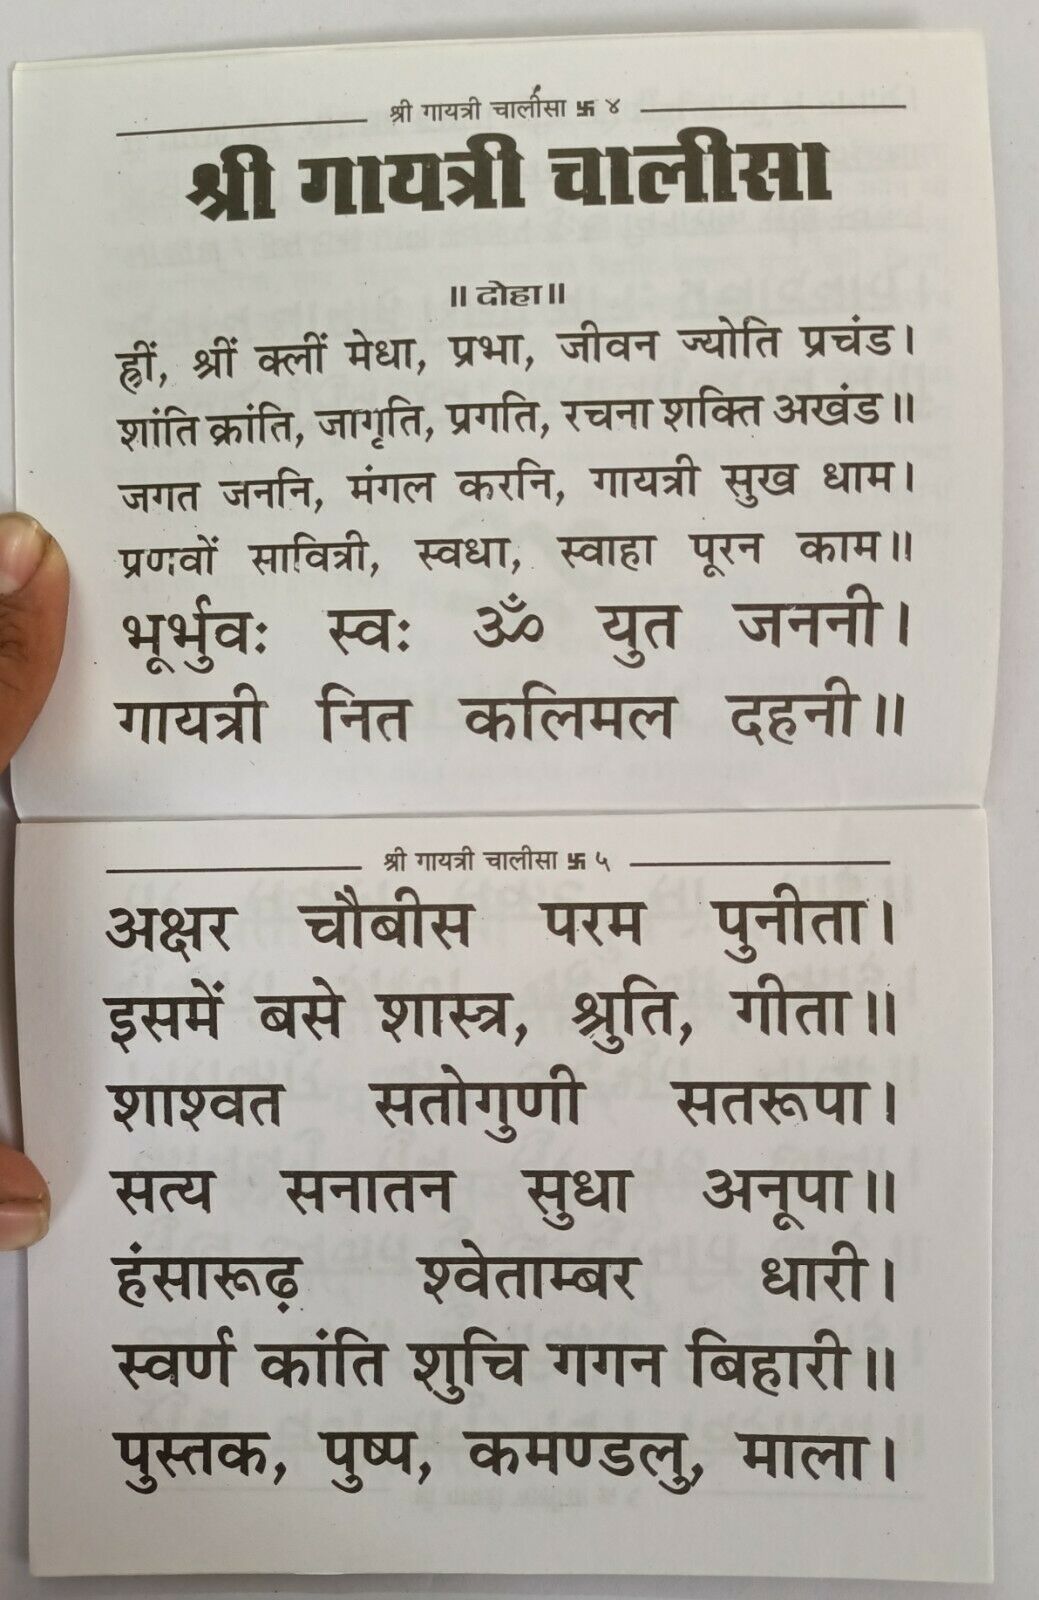 श्री गायत्री चालीसा 卐 ४
श्री गायत्री चालीसा
॥ दोहा॥
ह्रीं, श्रीं क्लीं मेधा, प्रभा, जीवन ज्योति प्रचंड।
शांति क्रांति, जागृति, प्रगति, रचना शक्ति अखंड॥
जगत जननि, मंगल करनि, गायत्री सुख धाम।
प्रणवों सावित्री, स्वधा, स्वाहा पूरन काम॥
भूर्भुवः स्वः ॐ युत जननी।
गायत्री नित कलिमल दहनी॥
श्री गायत्री चालीसा 卐 ५
अक्षर चौबीस परम पुनीता।
इसमें बसे शास्त्र, श्रुति, गीता॥
शाश्वत सतोगुणी सतरूपा।
सत्य सनातन सुधा अनूपा॥
हंसारूढ़ श्वेताम्बर धारी।
स्वर्ण कांति शुचि गगन बिहारी॥
पुस्तक, पुष्प, कमण्डलु, माला।